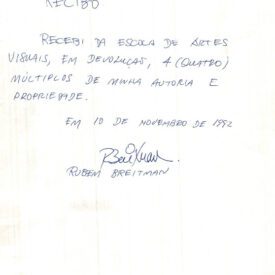 RECIBO
RECEBI DA ESCOLA DE ARTES
VISUAIS, EM DEVOLUÇÃO, 4 (QUATRO)
MÚLTIPLOS DE MINHA AUTORIA E
PROPRIEDADE.
EM 10 DE NOVEMBRO DE 1992
RUBEM BREITMAN